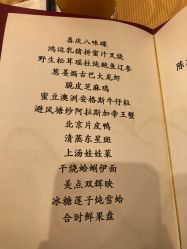 喜庆八味碟
鸿运乳猪拼蜜汁叉烧
野生松茸瑶柱炖鲍鱼辽参
葱姜焗古巴大龙虾
脆皮芝麻鸡
蜜豆澳洲安格斯牛仔粒
避风塘炒阿拉斯加帝王蟹
北京片皮鸭
清蒸东星斑
上汤娃娃菜
干烧蛤蜊伊面
美点双辉映
冰糖莲子炖雪蛤
合时鲜果盘
陈